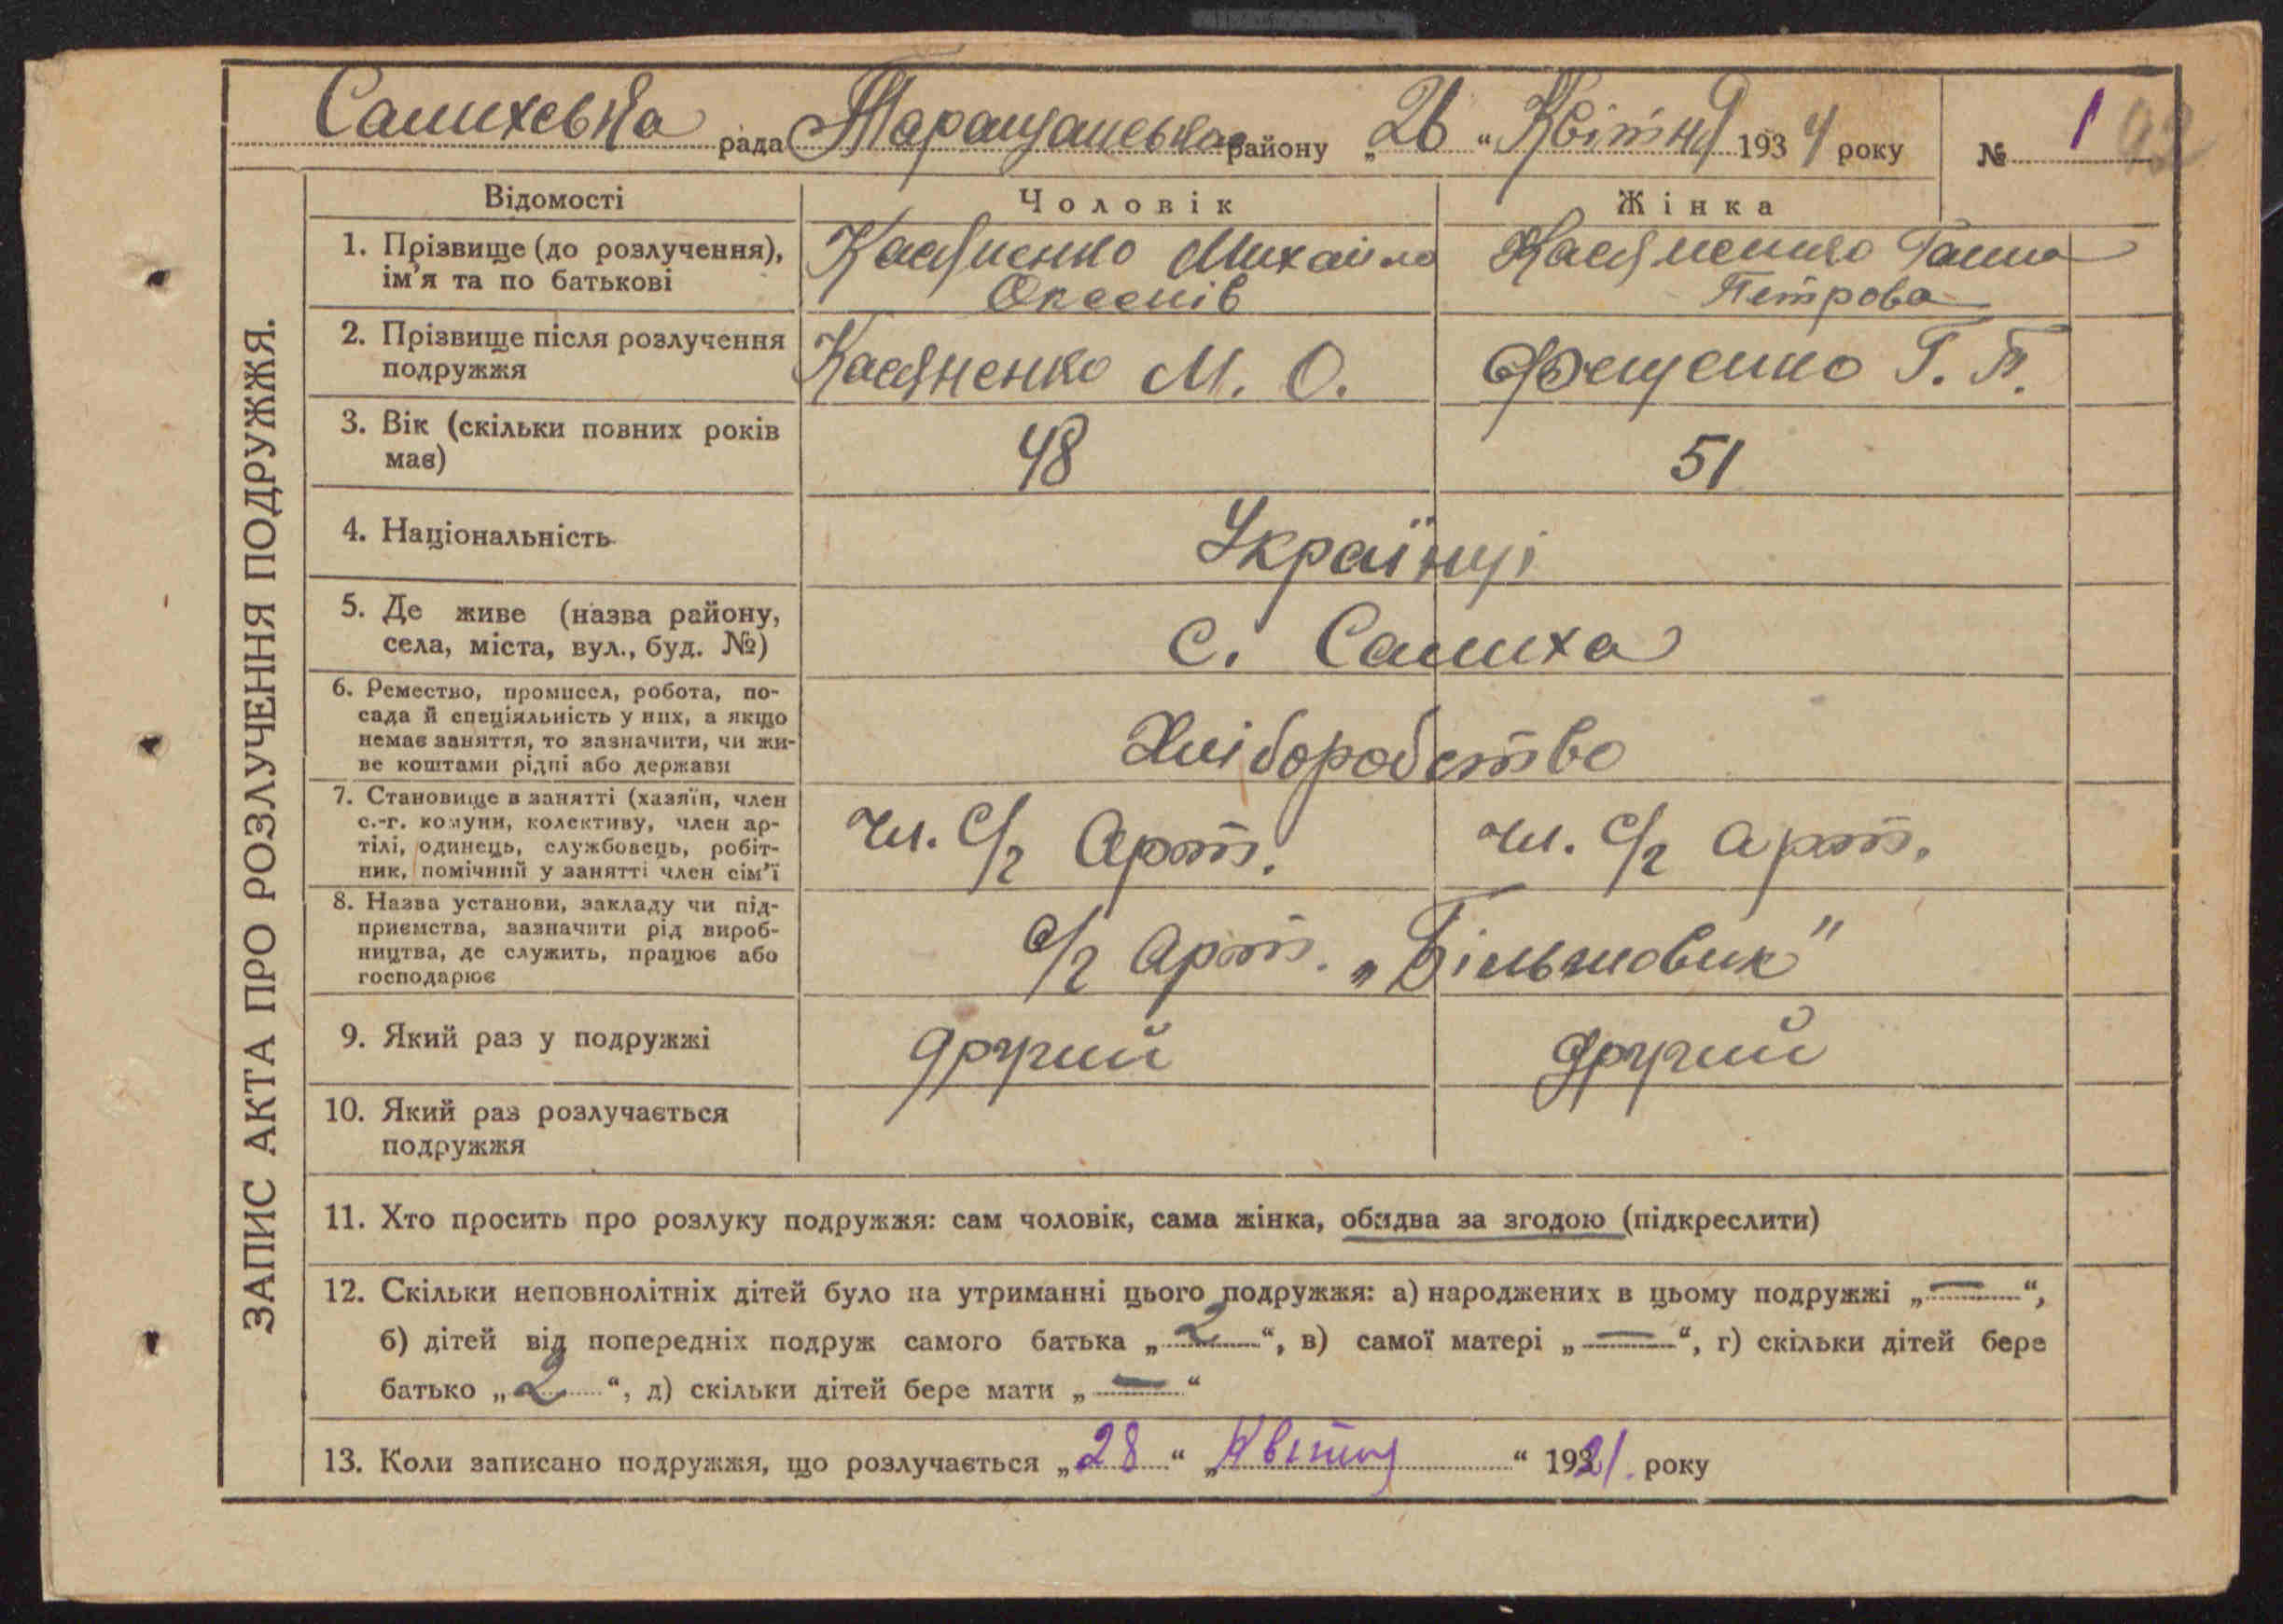 Салихська рада Таращанського району „26“ Квітня 1934 року № 1 92
ЗАПИС АКТА ПРО РОЗЛУЧЕННЯ ПОДРУЖЖЯ.
Відомості Чоловік Жінка
1. Прізвище (до розлучення), ім'я та по батькові
Касяненко Михайло
Оксенів
Касяненко Ганна
Петрова
2. Прізвище після розлучення подружжя
Касяненко М. О.
Фещенко Г. П.
3. Вік (скільки повних років має)
48
51
4. Національність
Українці
5. Де живе (назва району,
села, міста, вул., буд. №)
с. Салиха
6. Ремество, промисел, робота, по-
сада й спеціяльність у них, а якщо
немає заняття, то зазначити, чи жи-
ве коштами рідні або держави
Хліборобство
7. Становище в занятті (хазяїн, член
с.-г. комуни, колективу, член ар-
тілі, одинець, службовець, робіт-
ник, помічний у занятті член сім'ї
чл. с/г Арт.
чл. с/г арт.
8. Назва установи, закладу чи під-
приємства, зазначити рід вироб-
ництва, де служить, працює або
господарює
с/г Арт. „Більшовик"
9. Який раз у подружжі
другий
другий
10. Який раз розлучається
подружжя
11. Хто просить про розлуку подружжя: сам чоловік, сама жінка, обидва за згодою (підкреслити)
12. Скільки неповнолітніх дітей було на утриманні цього подружжя: а) народжених в цьому подружжі „—“,
б) дітей від попередніх подруж самого батька „2“, в) самої матері „—“, г) скільки дітей бере
батько „2“, д) скільки дітей бере мати „—“
13. Коли записано подружжя, що розлучається „28“ „Квітня“ 1921. року